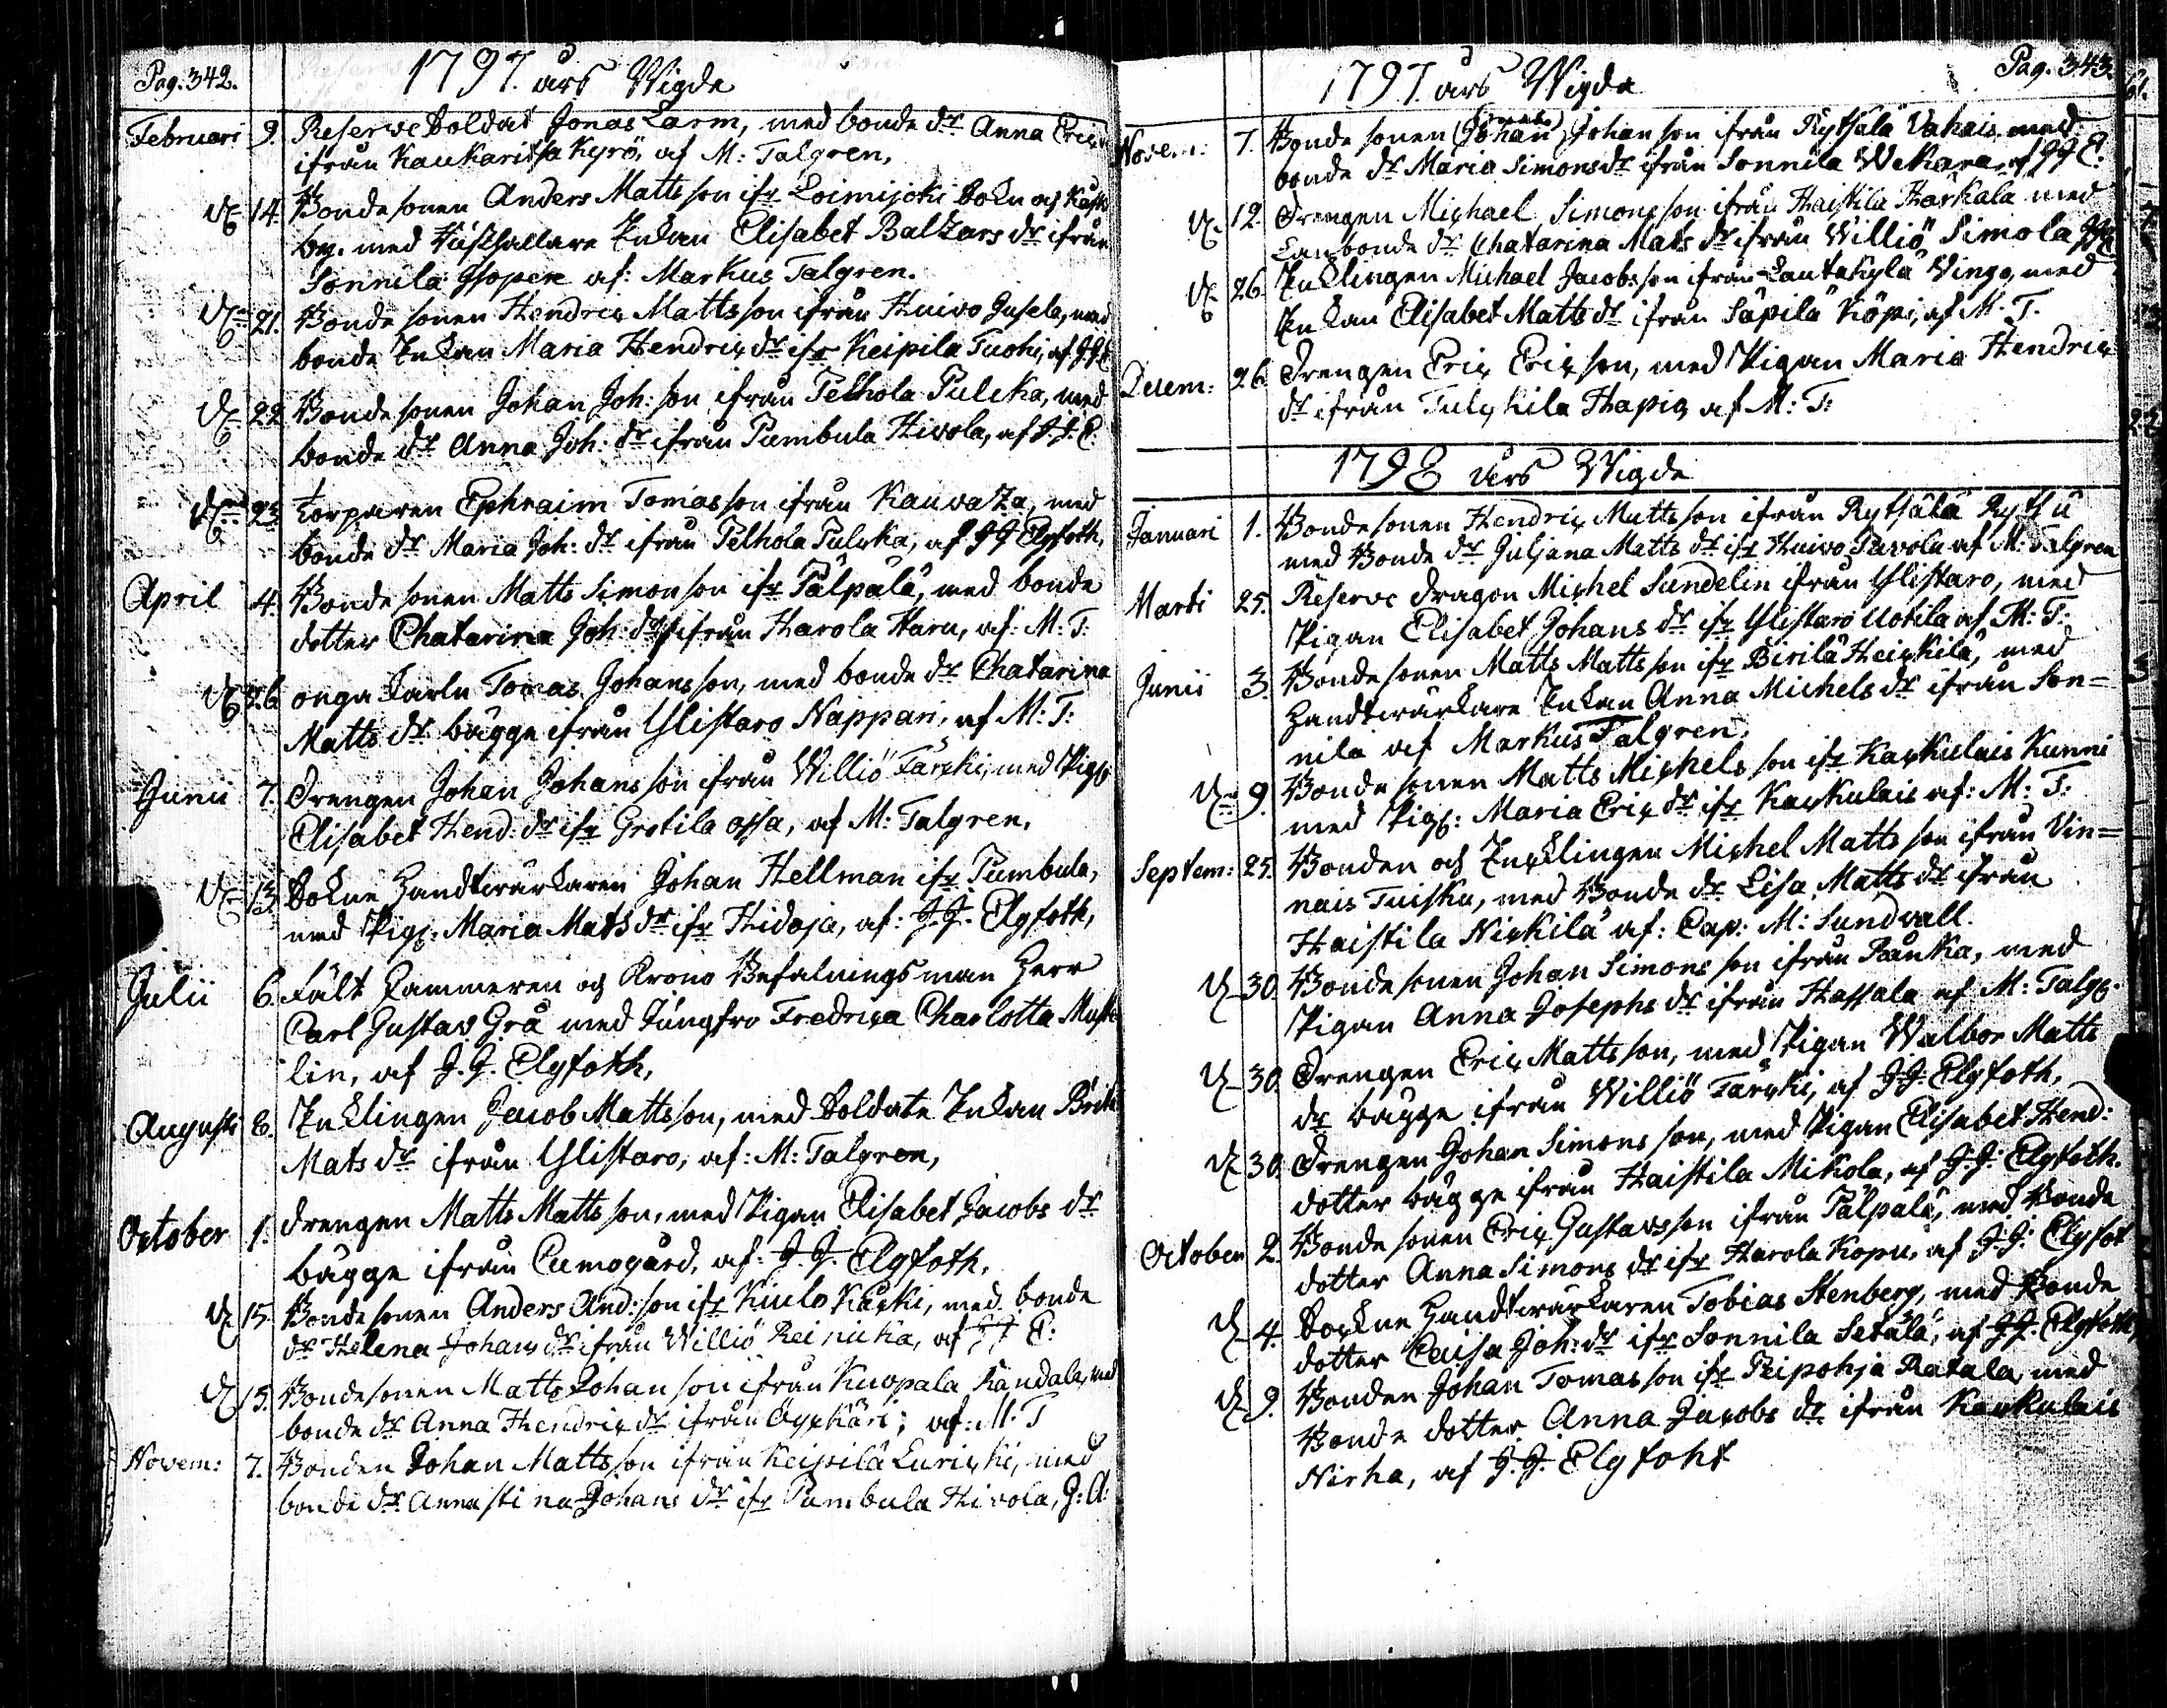 Pag: 342.
1797. års Wigde
Februari 9. Reserve Soldat Jonas Larm, med bonde dr Anna Eric
ifrån Kaukaritsa Kyrö, af M: Talgren,
14. Bonde sonen Anders Matts son ifr Loimijoki Sokn och
by. med Enkan Elisabet Balzars dr ifrån
Sonnila af: Markus Talgren.
21. Bonde sonen Hendric Matts son ifrån Huivo Jusela, med
bonde Enkan Maria Hendrics dr ifr Keipilä Tuohi, af J J E
22 Bonde sonen Johan Joh: son ifrån Pelhola Pulcka, med
bonde dr Anna Joh: dr ifrån Pumbula Hivola, af J. J. E:
23. Torparen Ephraim Tomas son ifrån Kauvaza, med
bonde dr Maria Joh: dr ifrån Pelhola Pulcka, af J J Elgfoth,
April 4. Bonde sonen Matts Simon son ifr Pälpälä, med bonde
dotter Chatarina Joh: dr ifrån Harola Haru, af: M: T:
26 onga Karln Tomas Johans son, med bonde dr Chatarina
Matts dr bägge ifrån Ylistaro Nappari, af M: T:
Junii 7. Drengen Johan Johans son ifrån Williö Tärcki, med Pig:
Elisabet Hend: dr ifr Grotila assa, af M: Talgren,
13. Sokne Handtwärkaren Johan Hellman ifr Pumbula,
med Pig: Maria Mats dr ifr Hidoja, af: J. J. Elgfoth,
Julii 6. Fält Kammeren och Krono Befalnings man Herr
Carl Gustav Grå med Jungfro Fredrica Charlotta
lin, af J. J. Elgfoth,
Augusti 6. Enklingen Jacob Matts son, med Soldate Enkan Brita
Mats dr ifrån Ylistaro, af: M: Talgren,
October 1. Drengen Matts Matts son, med Pigan Elisabet Jacobs dr
bägge ifrån Cumogård, af: J. J. Elgfoth,
15. Bonde sonen Anders And: son ifr Kiulo Kärki, med bonde
dr Helena Johans dr ifrån Williö Reinicka, af J J E:
15. Bonde sonen Matts Johan son ifrån Kuopala Kandala, med
bonde dr Anna Hendrics dr ifrån af: M: T
Novem: 7. Bonden Johan Matts son ifrån Keipilä Euricki, med
bonde dr Annastina Johans dr ifr Pumbula Hivola, J: A:
Pag. 343.
1797. års Wigda
Novem: 7. Bonde sonen Johan Johan son ifrån Rytsälä Vahais, med
bonde dr Maria Simons dr ifrån Sonnila Wekara, af J J E.
12. Drengen Michael Simons son ifrån Haistila Harkala med
Lanbonde dr Chatarina Mats dr ifrån Williö Simola
26. Enklingen Michael Jacobs son ifrån Lautakylä Vingo, med
Enkan Elisabet Matts dr ifrån Säpilä Köpi, af M: T.
Decem: 26. Drengen Eric Eric son, med Pigan Maria Hendric
dr ifrån Tulckila Hapio af M: T:
1798 års Wigde
Januari 1. Bonde sonen Hendric Matts son ifrån Rytsälä Rytsä
med Bonde dr Juljana Matts dr ifr Huivo Pavola af M: Talgren
Marti 25. Reserve Dragon Michel Sundelin ifrån Ylistaro, med
Pigan Elisabet Johans dr ifr Ylistaro Uotila af M: T:
Junii 3. Bonde sonen Matts Matts son ifr Birilä Heickilä, med
Handtwärkare Enkan Anna Michels dr ifrån Son=
nila af Markus Talgren.
9. Bonde sonen Matts Michels son ifr Karkulais Kunni
med Pig: Maria Eric dr ifr Karkulais af: M: T:
Septem: 25. Bonden och Encklingen Michel Matts son ifrån Vin=
nais Tuisku, med Bonde dr Lisa Matts dr ifrån
Haistila Nickilä af: Cap: M: Sundvall.
30. Bonde sonen Johan Simons son ifrån Ranka, med
Pigan Anna Josephs dr ifrån Hassala af M: Talg:
30. Drengen Eric Matts son, med Pigan Walbor Matts
dr bägge ifrån Williö Tärcki, af J. J. Elgfoth,
30. Drengen Johan Simons son, med Pigan Elisabet Hend:
dotter bägge ifrån Haistila Mikola, af J. J. Elgfoth.
October 2. Bonde sonen Eric Gustavs son ifrån Pälpälä, med Bonde
dotter Anna Simons dr ifr Harola Kopu, af J. J. Elgfot
4. Sockne Handtwärkaren Tobias Stenberg, med Bonde
dotter Caisa Joh: dr ifr Sonnila Setälä, af J J. Elgfoth,
9. Bonden Johan Tomas son ifr Peipohja Ratala, med
Bonde dotter Anna Jacobs dr ifrån Karkulais
Nirha, af J. J. Elgfoht